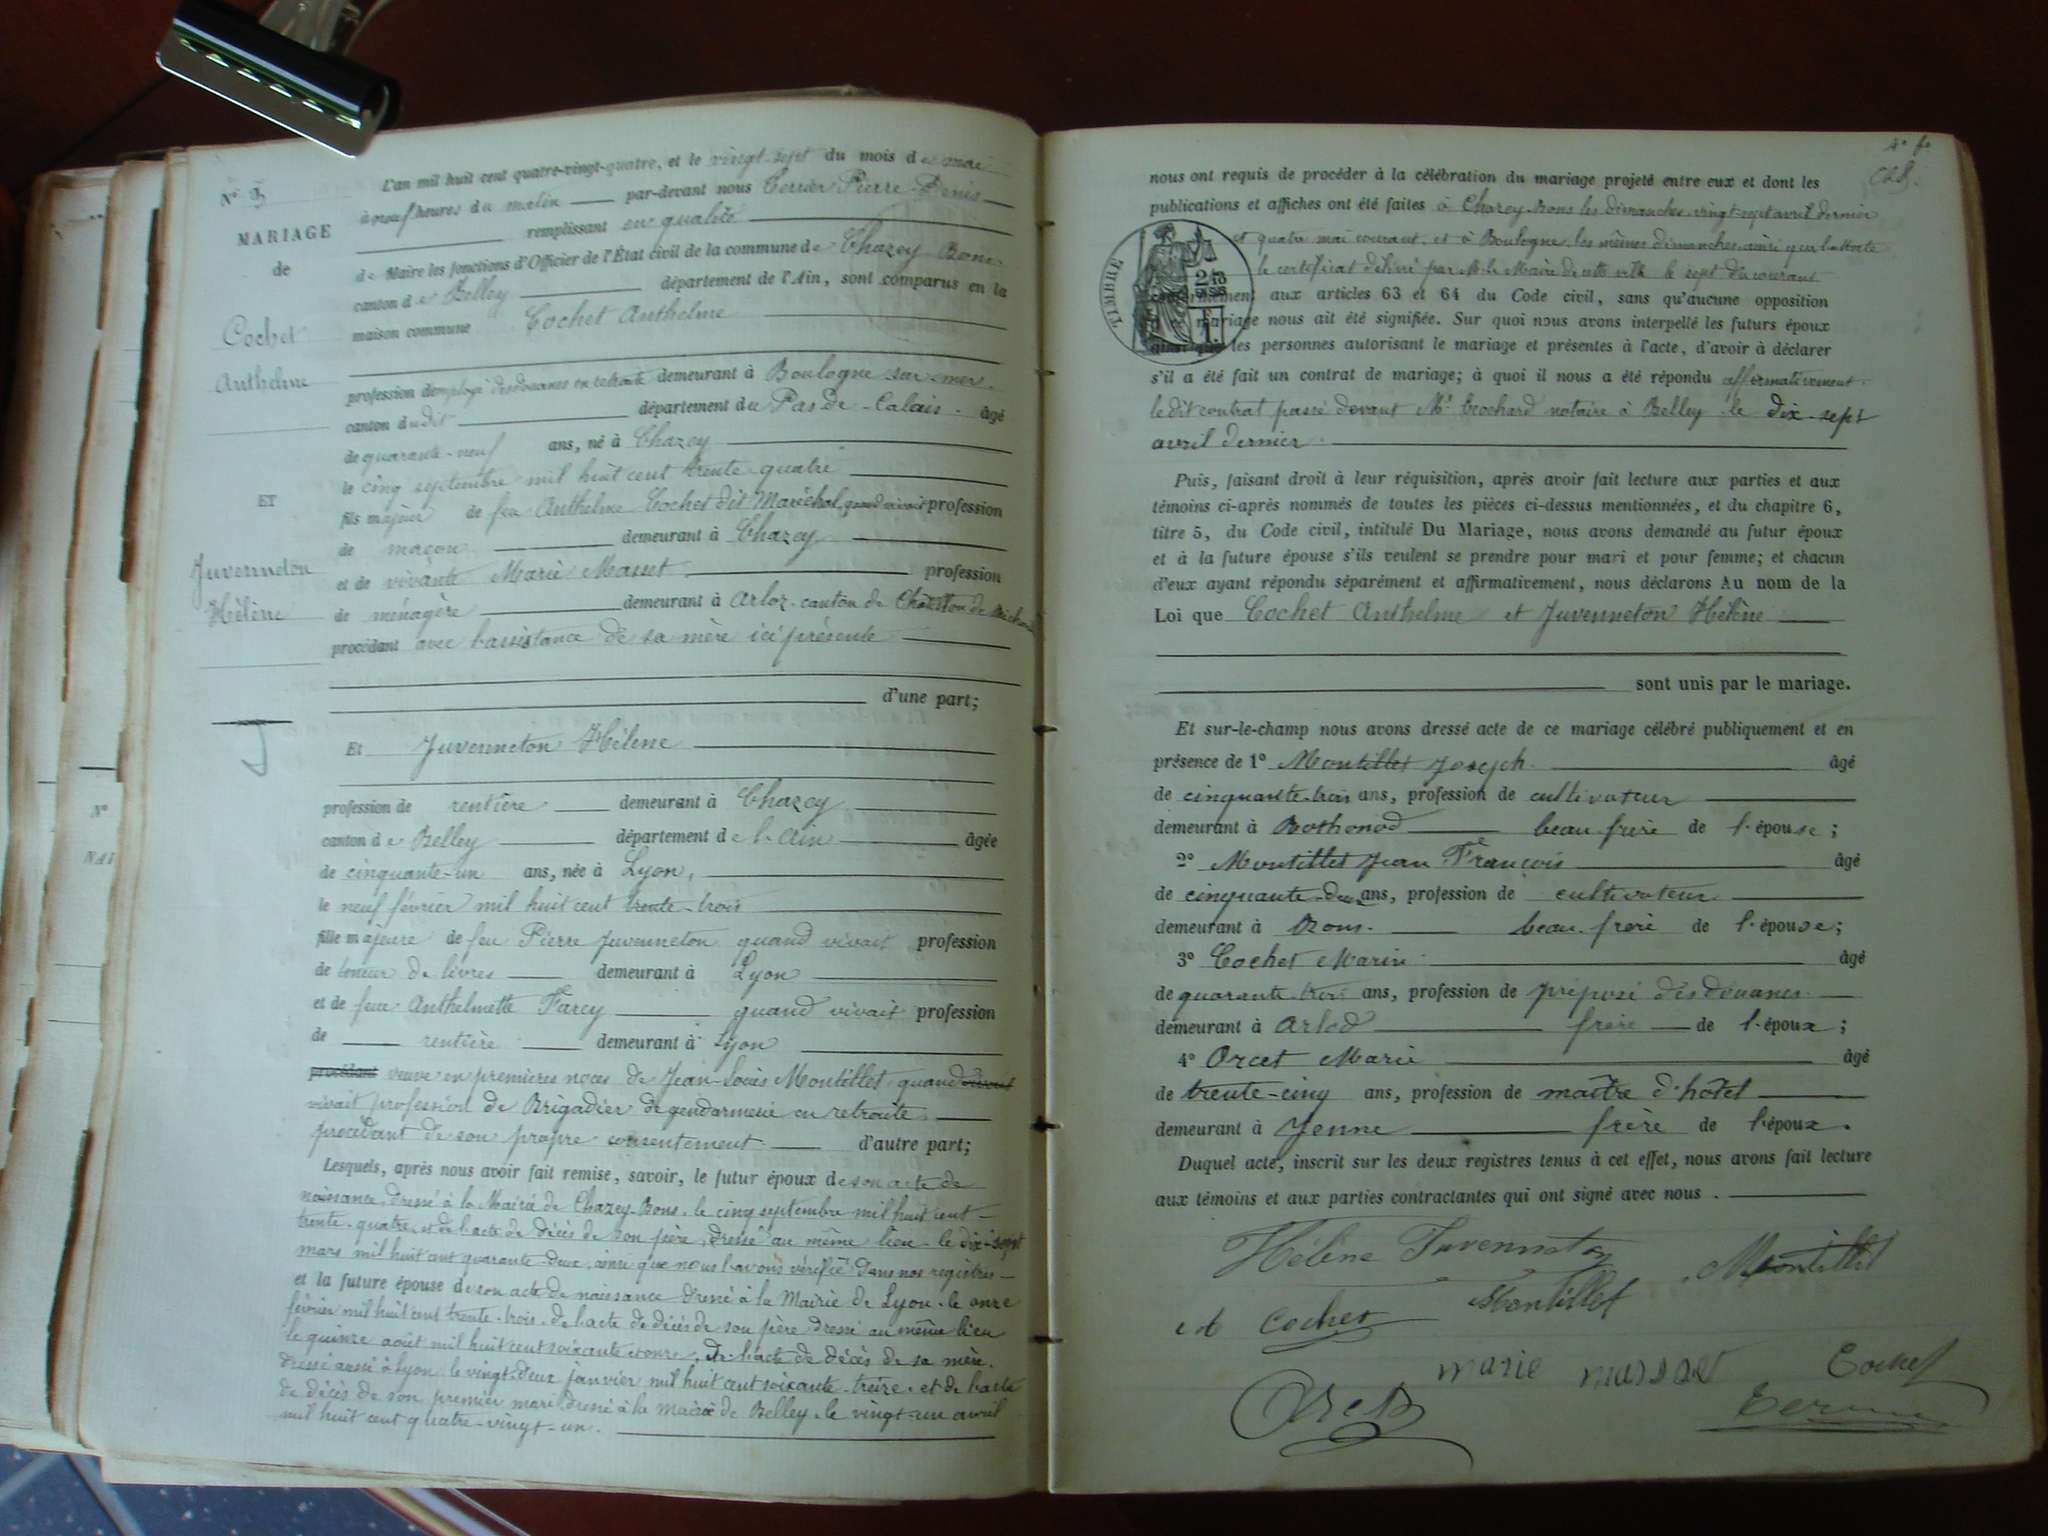 N° 3
MARIAGE
de
Cochet
Anthelme
ET
Juvenneton
Hélène
L'an mil huit cent quatre-vingt-quatre, et le vingt-sept du mois de mai
à neuf heures du matin par-devant nous Terrier Pierre Denis
remplissant en qualité
de Maire les fonctions d'Officier de l'État civil de la commune de Chazey Bons
canton de Belley département de l'Ain, sont comparus en la
maison commune Cochet Anthelme
profession d'employé des douanes en retraite demeurant à Boulogne sur mer
canton du dit département du Pas de-Calais. âgé
de quarante-neuf ans, né à Chazey
le cinq septembre mil huit cent trente quatre
fils majeur de feu Anthelme Cochet dit Maréchal, quand vivait profession
de maçon demeurant à Chazey
et de vivante Marie Masset profession
de ménagère demeurant à Arloz canton de Châtillon de Michaille
procédant avec l'assistance de sa mère ici présente
d'une part;
Et Juvenneton Hélène
profession de rentière demeurant à Chazey
canton de Belley département de l'Ain âgée
de cinquante-un ans, née à Lyon,
le neuf février mil huit cent trente-trois
fille majeure de feu Pierre Juvenneton quand vivait profession
de teneur de livres demeurant à Lyon
et de feue Anthelmette Farcy quand vivait profession
de rentière demeurant à Lyon
procédant veuve en premières noces de Jean-Louis Montillet quand
vivait profession de Brigadier de gendarmerie en retraite
procédant de son propre consentement d'autre part;
Lesquels, après nous avoir fait remise, savoir, le futur époux de son acte de
naissance, dressé à la Mairie de Chazey-Bons, le cinq septembre mil huit cent
trente-quatre, et de l'acte de décès de son père, dressé au même lieu le dix-sept
mars mil huit cent quarante-deux, ainsi que nous l'avons vérifié dans nos registres
et la future épouse de son acte de naissance dressé à la Mairie de Lyon le onze
février mil huit cent trente-trois, de l'acte de décès de son père dressé au même lieu
le quinze août mil huit cent soixante et onze, de l'acte de décès de sa mère
dressé aussi à Lyon le vingt-deux janvier mil huit cent soixante-treize, et de l'acte
de décès de son premier mari dressé à la mairie de Belley le vingt-un avril
mil huit cent quatre-vingt-un.
nous ont requis de procéder à la célébration du mariage projeté entre eux et dont les
publications et affiches ont été faites à Chazey-Bons les dimanches vingt-sept avril dernier
et quatre mai courant, et à Boulogne les mêmes dimanches ainsi que l'atteste
le certificat délivré par M. le Maire de cette ville le sept du courant
TIMBRE
conformément aux articles 63 et 64 du Code civil, sans qu'aucune opposition
à ce mariage nous ait été signifiée. Sur quoi nous avons interpellé les futurs époux
ainsi que les personnes autorisant le mariage et présentes à l'acte, d'avoir à déclarer
s'il a été fait un contrat de mariage; à quoi il nous a été répondu affirmativement
le dit contrat passé devant Me Trochard notaire à Belley le dix-sept
avril dernier.
Puis, faisant droit à leur réquisition, après avoir fait lecture aux parties et aux
témoins ci-après nommés de toutes les pièces ci-dessus mentionnées, et du chapitre 6,
titre 5, du Code civil, intitulé Du Mariage, nous avons demandé au futur époux
et à la future épouse s'ils veulent se prendre pour mari et pour femme; et chacun
d'eux ayant répondu séparément et affirmativement, nous déclarons Au nom de la
Loi que Cochet Anthelme et Juvenneton Hélène
sont unis par le mariage.
Et sur-le-champ nous avons dressé acte de ce mariage célébré publiquement et en
présence de 1° Montillet Joseph âgé
de cinquante-trois ans, profession de cultivateur
demeurant à Bothonod beau frère de l'épouse;
2° Montillet Jean François âgé
de cinquante-deux ans, profession de cultivateur
demeurant à Bons. beau-frère de l'épouse;
3° Cochet Marin âgé
de quarante trois ans, profession de préposé des douanes
demeurant à Arlod frère de l'époux;
4° Orcet Marie âgé
de trente-cinq ans, profession de maître d'hôtel
demeurant à Yenne frère de l'époux.
Duquel acte, inscrit sur les deux registres tenus à cet effet, nous avons fait lecture
aux témoins et aux parties contractantes qui ont signé avec nous.
Hélène Juvenneton
Montillet
Montillet
Cochet
marie masset
Cochet
Orcet
N°
NAI